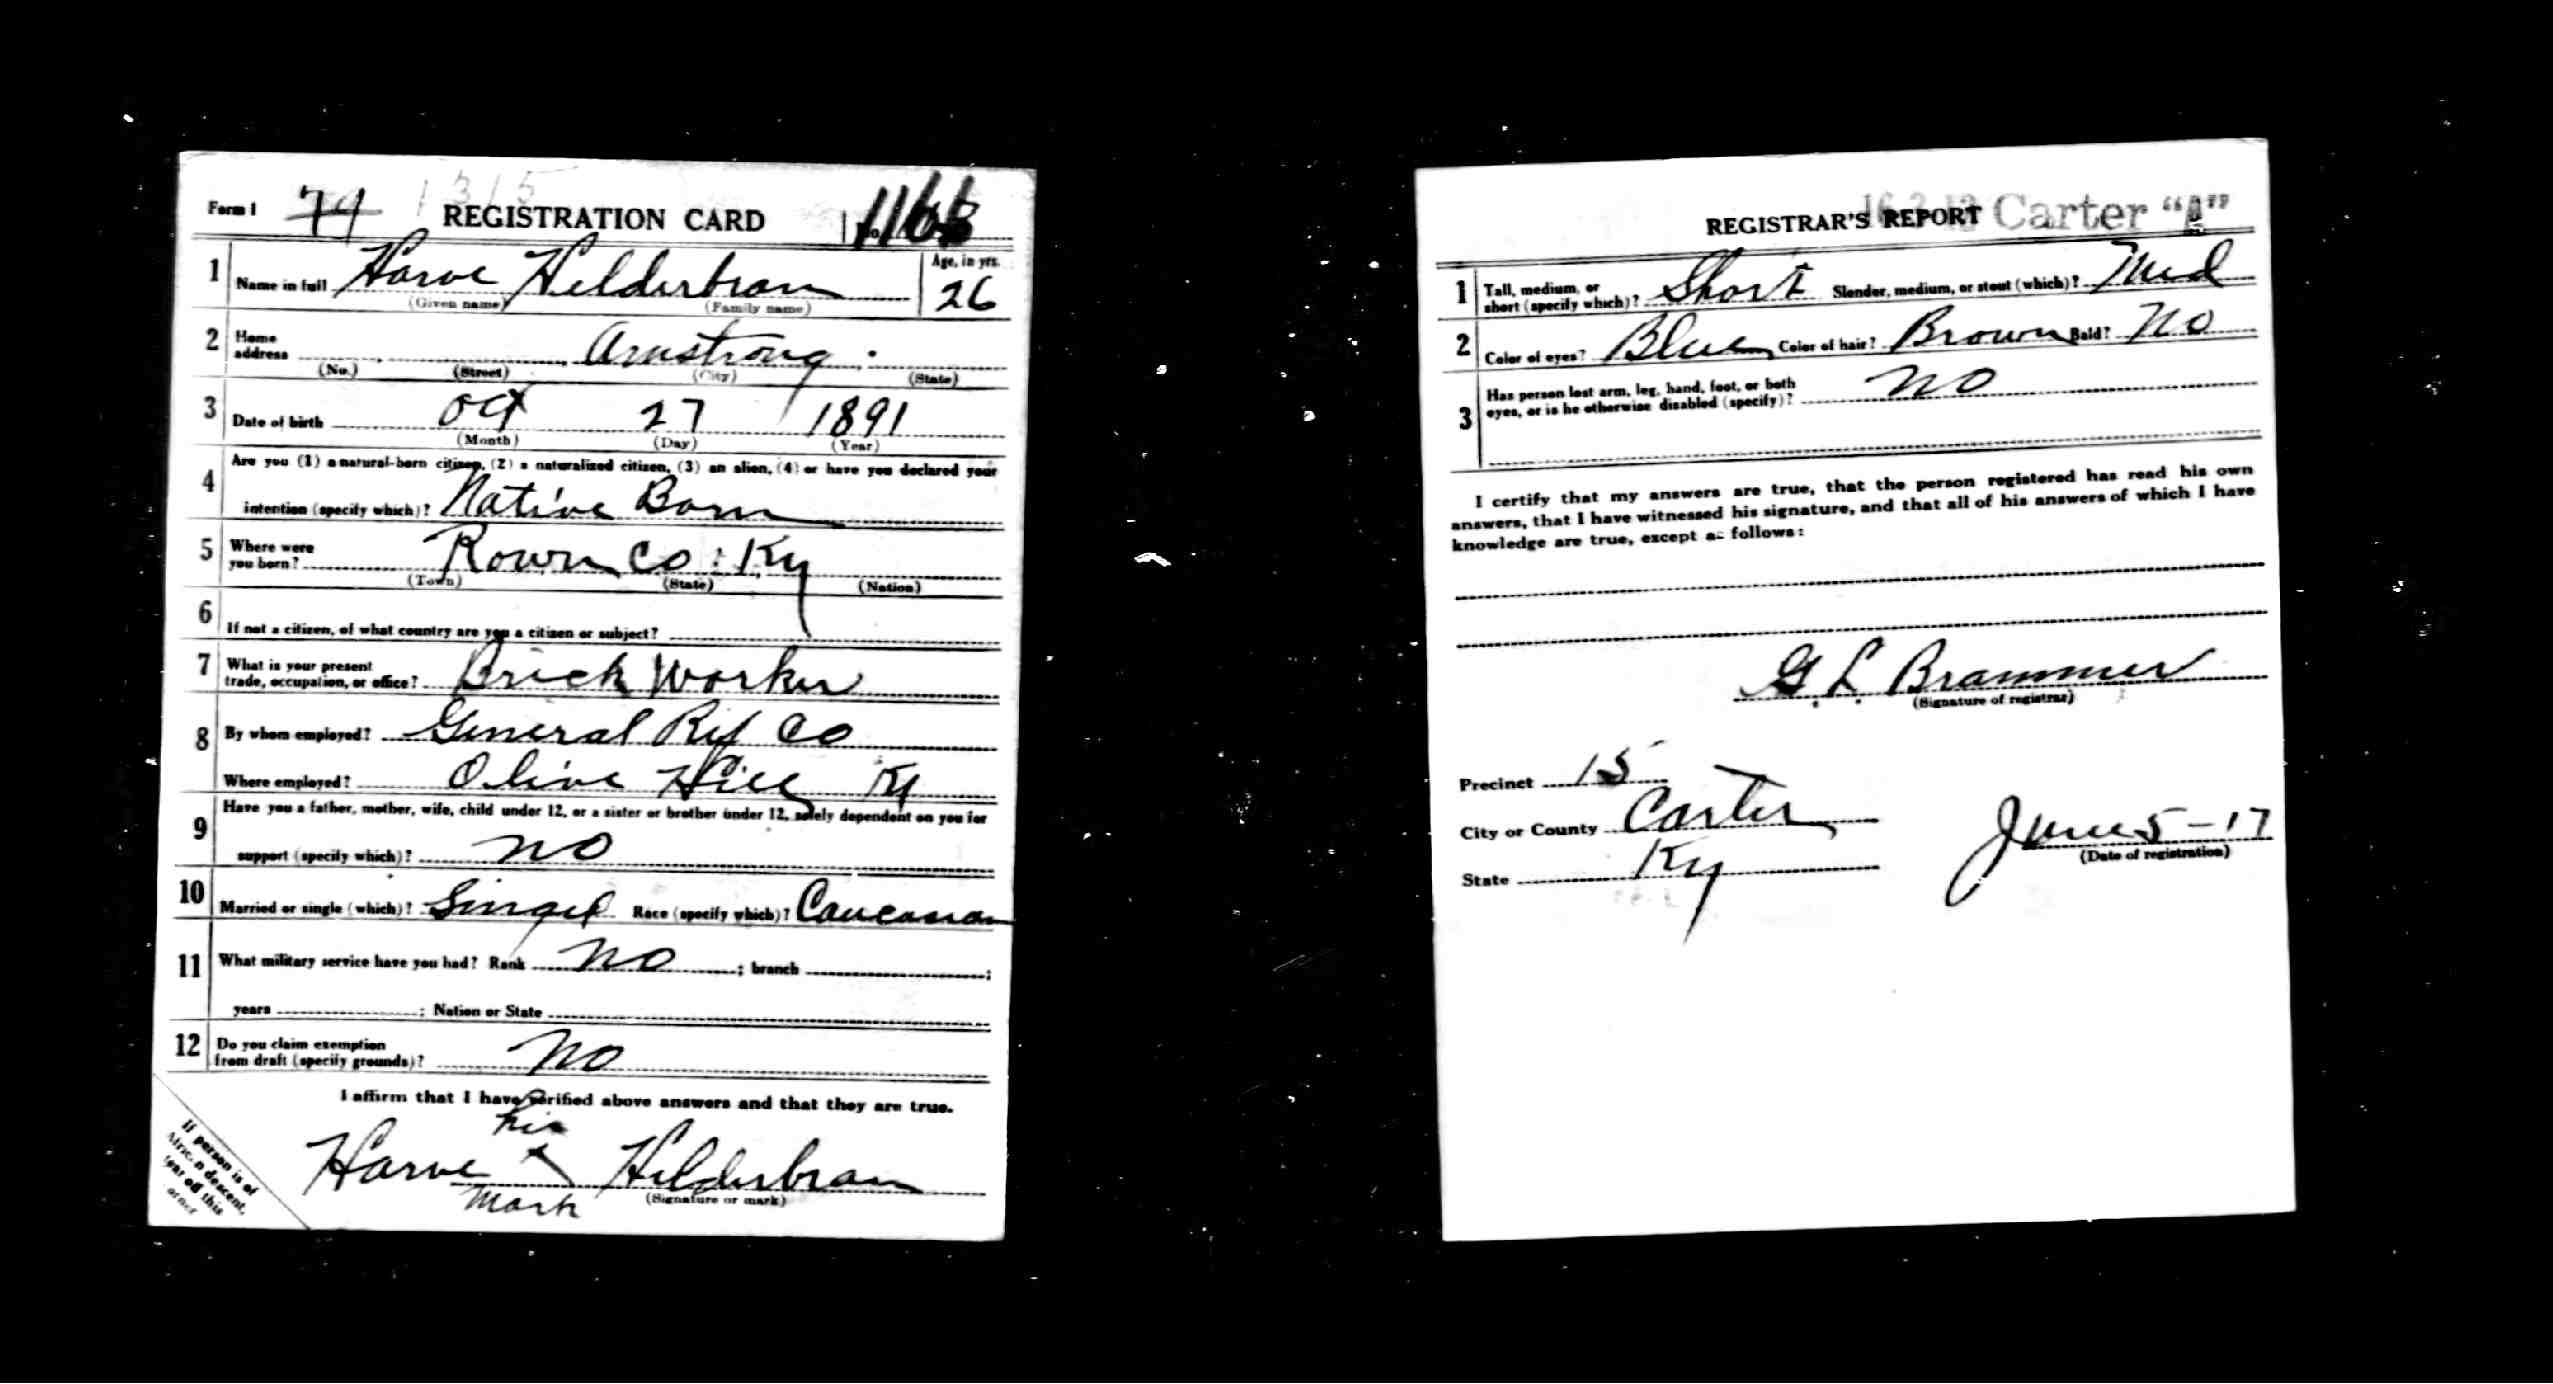 Form 1 74 1315 REGISTRATION CARD No. 1166
1 Name in full Harve Hilderbran Age, in yrs. 26
(Given name) (Family name)
2 Home address Armstrong
(No.) (Street) (City) (State)
3 Date of birth Oct 27 1891
(Month) (Day) (Year)
4 Are you (1) a natural-born citizen, (2) a naturalized citizen, (3) an alien, (4) or have you declared your
intention (specify which)? Native Born
5 Where were you born? Rown Co: Ky
(Town) (State) (Nation)
6 If not a citizen, of what country are you a citizen or subject?
7 What is your present trade, occupation, or office? Brick Worker
8 By whom employed? General Ref Co
Where employed? Olive Hill Ky
9 Have you a father, mother, wife, child under 12, or a sister or brother under 12, solely dependent on you for
support (specify which)? no
10 Married or single (which)? Singel Race (specify which)? Caucasian
11 What military service have you had? Rank no ; branch ;
years ; Nation or State
12 Do you claim exemption from draft (specify grounds)? no
I affirm that I have verified above answers and that they are true.
his
Harve x Hilderbran
mark (Signature or mark)
If person is of
African descent,
tear off this
corner
REGISTRAR'S REPORT Carter "A"
1 Tall, medium, or short (specify which)? Short Slender, medium, or stout (which)? Med
2 Color of eyes? Blue Color of hair? Brown Bald? No
3 Has person lost arm, leg, hand, foot, or both
eyes, or is he otherwise disabled (specify)? no
I certify that my answers are true, that the person registered has read his own
answers, that I have witnessed his signature, and that all of his answers of which I have
knowledge are true, except as follows:
G L Brammer
(Signature of registrar)
Precinct 15
City or County Carter
State Ky
June 5-17
(Date of registration)